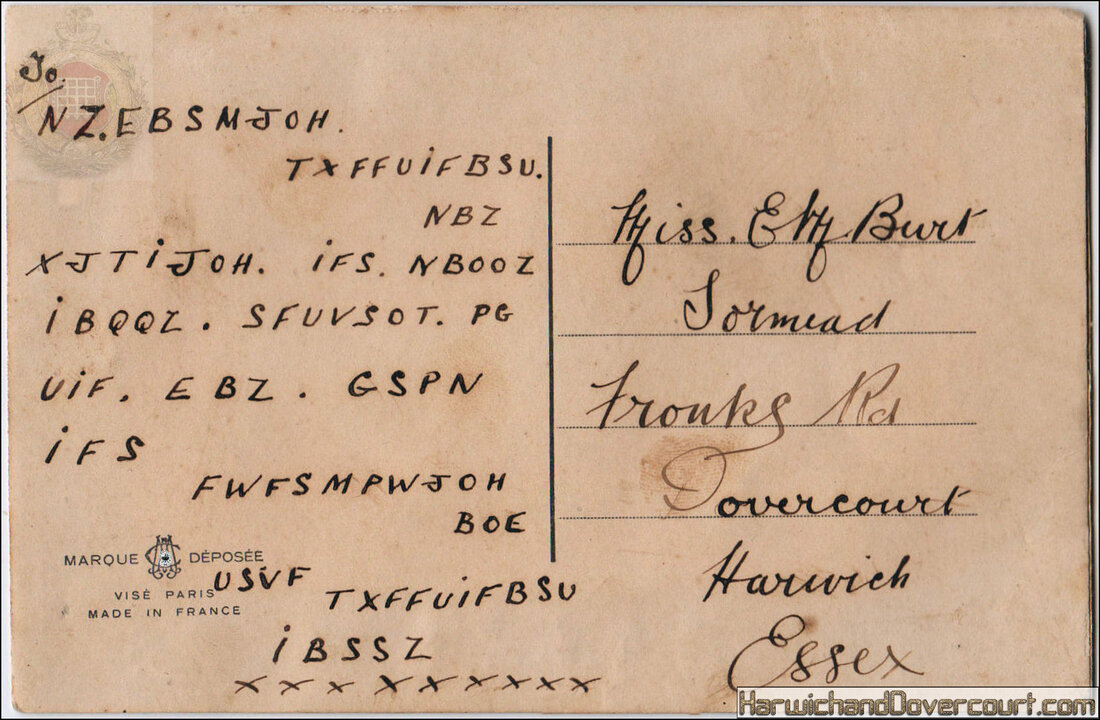 To/
NZ.EBSMJOH.
TXFFUiFBSU.
NBZ
XJTiJOH. iFS. NBOOZ
iBQQZ. SFUVSOT. PG
UiF. EBZ. GSPN
iFS
FWFSMPWJOH
BOE
USVF
TXFFUiFBSU
iBSSZ
x x x x x x x x x
MARQUE DÉPOSÉE
VISÉ PARIS
MADE IN FRANCE
Miss. EM Burt
Tormead
Fronks Rd
Dovercourt
Harwich
Essex
HarwichandDovercourt.com